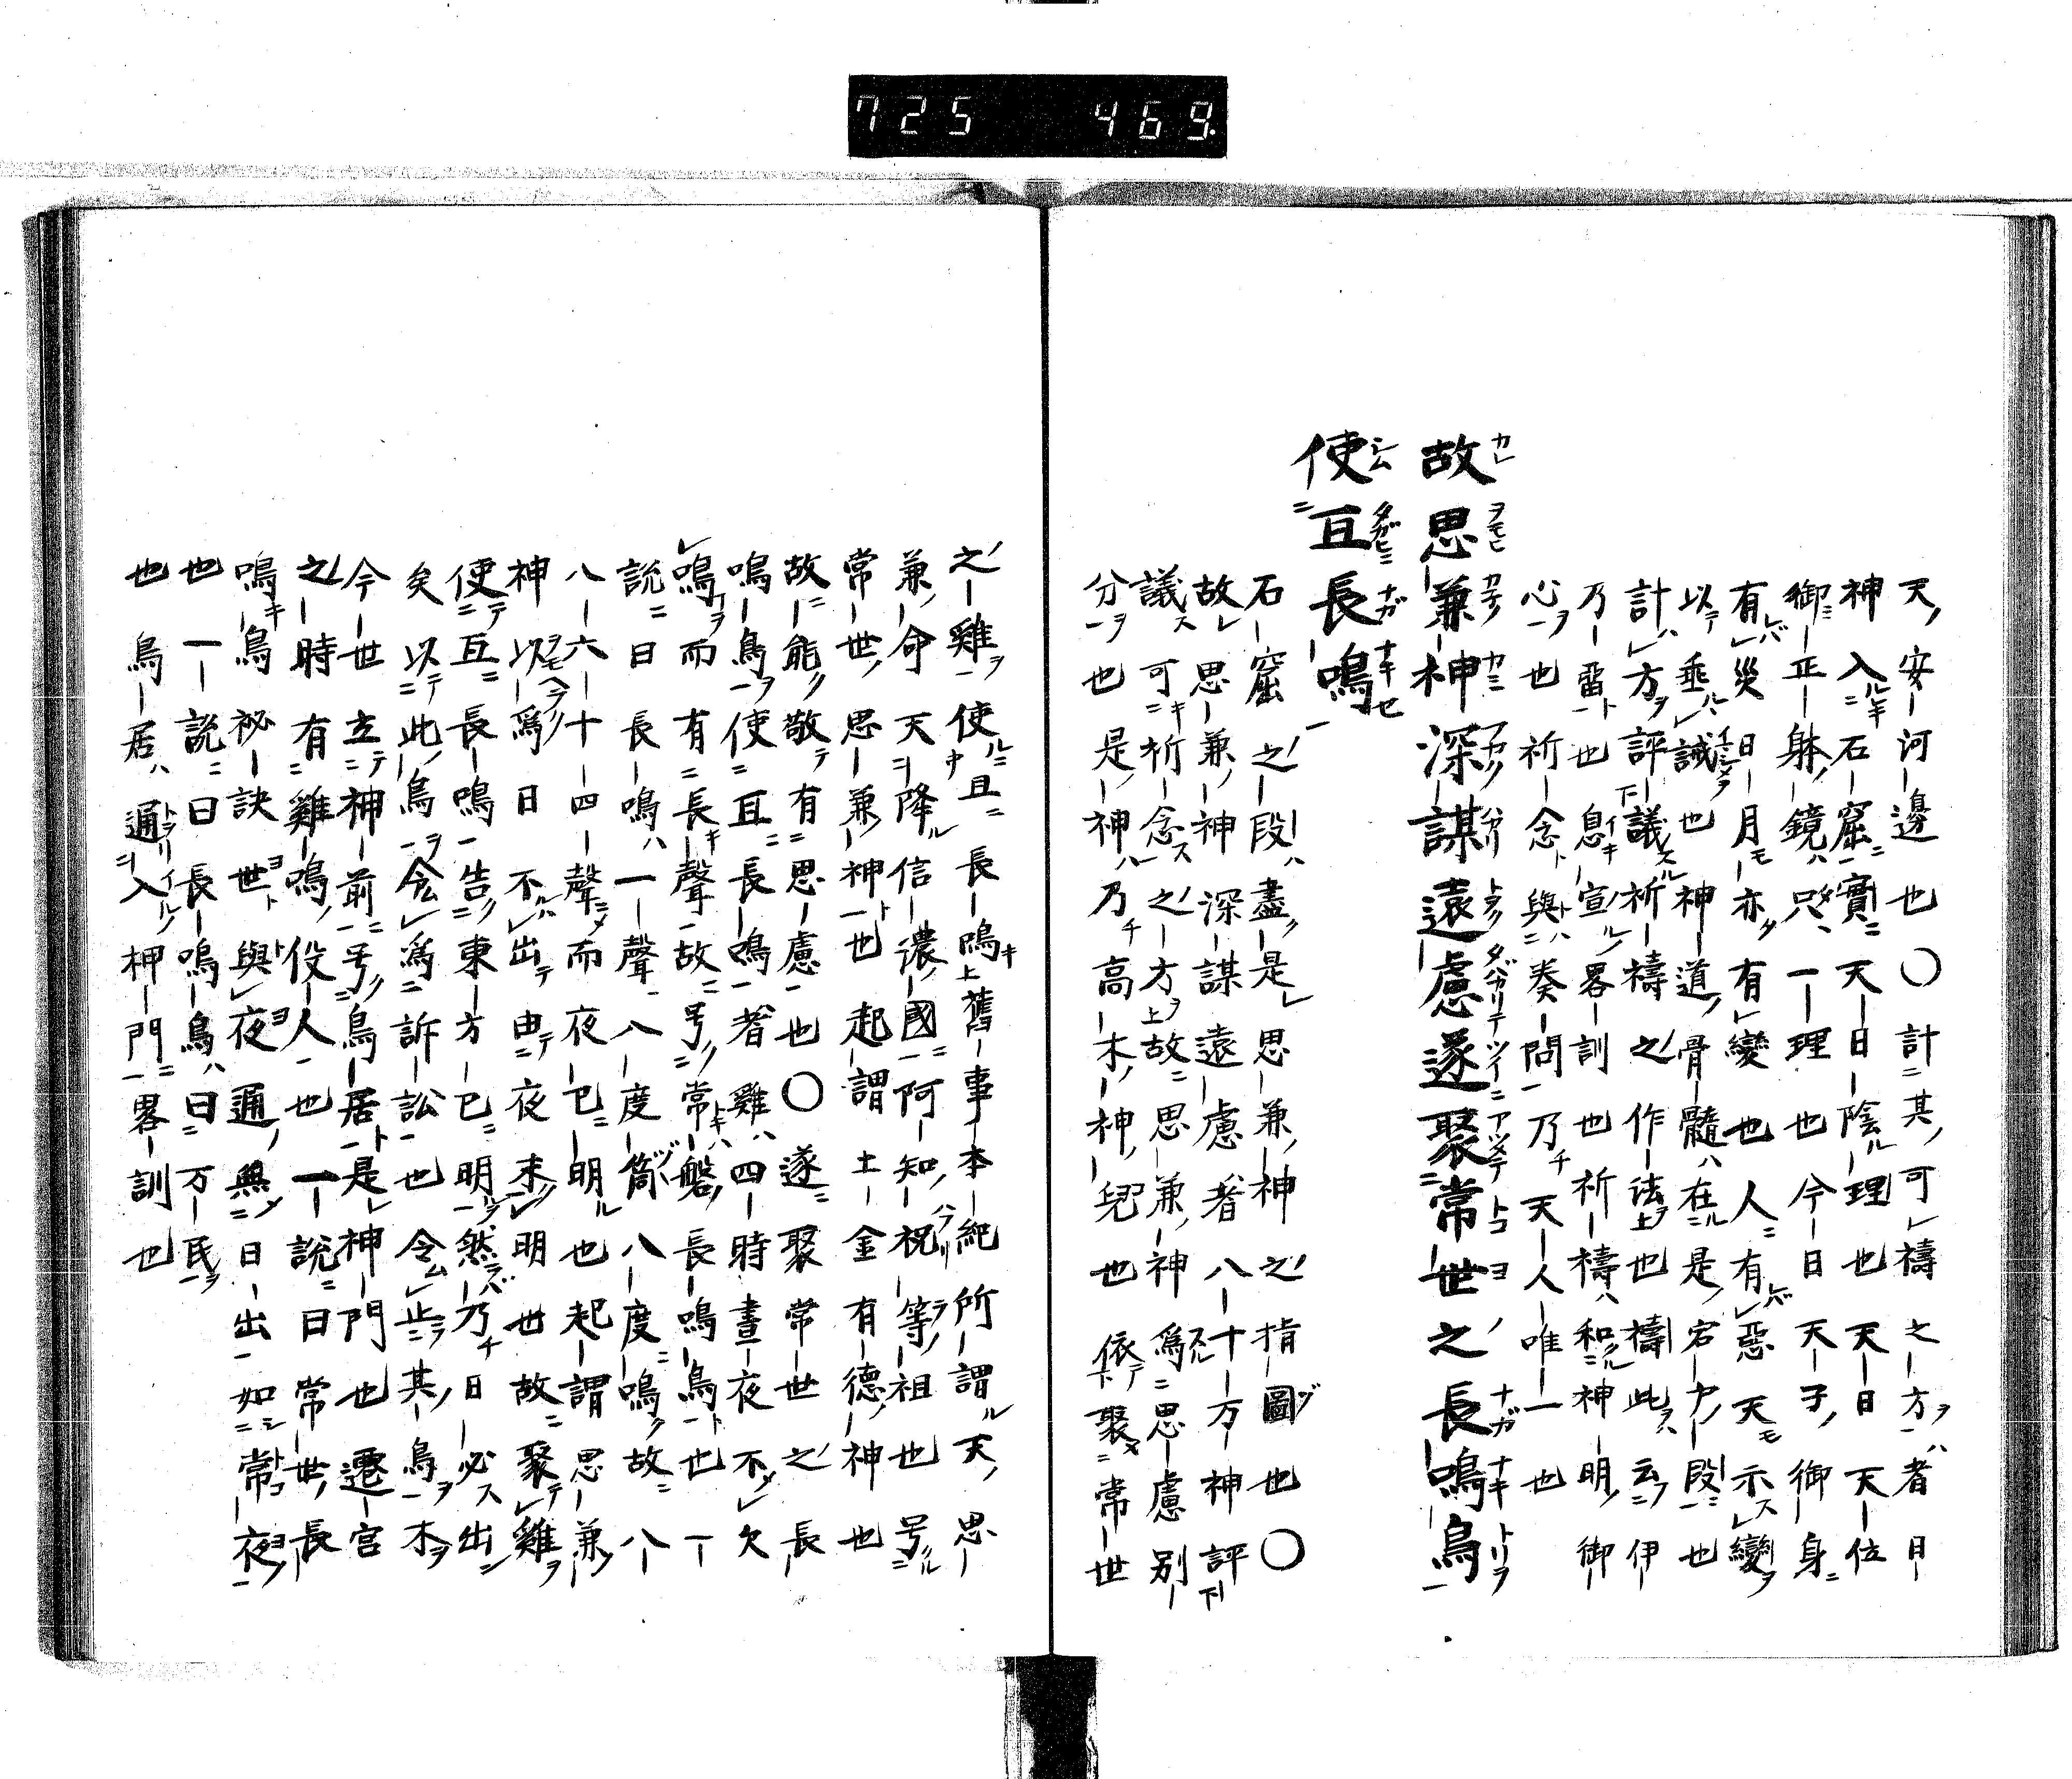 725 469
天安河邊也○計其可禱之方者日
神入石窟實天日陰理也天日天位
御正躰鏡只一理也今日天子御身
有災日月亦有變也人有惡天示變
以垂誡也神道骨髓在是宕戸段也
計方評議祈禱之作法也禱此云伊
乃雷也息宣畧訓也祈禱和神明御
心也祈念與奏問乃天人唯一也
故思兼神深謀遠慮遂聚常世之長鳴鳥
使互長鳴
石窟之段盡是思兼神之指圖也○
故思兼神深謀遠慮者八十万神評
議可祈念之方故思兼神爲思慮別
分也是神乃高木神兒也依聚常世
之雞使互長鳴舊事本紀所謂天思
兼命天降信濃國阿知祝等祖也号
常世思兼神也起謂土金有德神也
故能敬有思慮也○遂聚常世之長
鳴鳥使互長鳴者雞四時晝夜不欠
鳴而有長聲故号常磐長鳴鳥也一
説曰長鳴一聲八度筒八度鳴故八
八六十四聲而夜已明也起謂思兼
神以爲日不出由夜未明也故聚雞
使互長鳴告東方已明然乃日必出
矣以此鳥令爲訴訟也令止其鳥木
今世立神前号鳥居是神門也遷宮
之時有雞鳴役人也一説曰常世長
鳴鳥祕訣世與夜通無日出如常夜
也一説曰長鳴鳥曰万民
也鳥居通入神門畧訓也